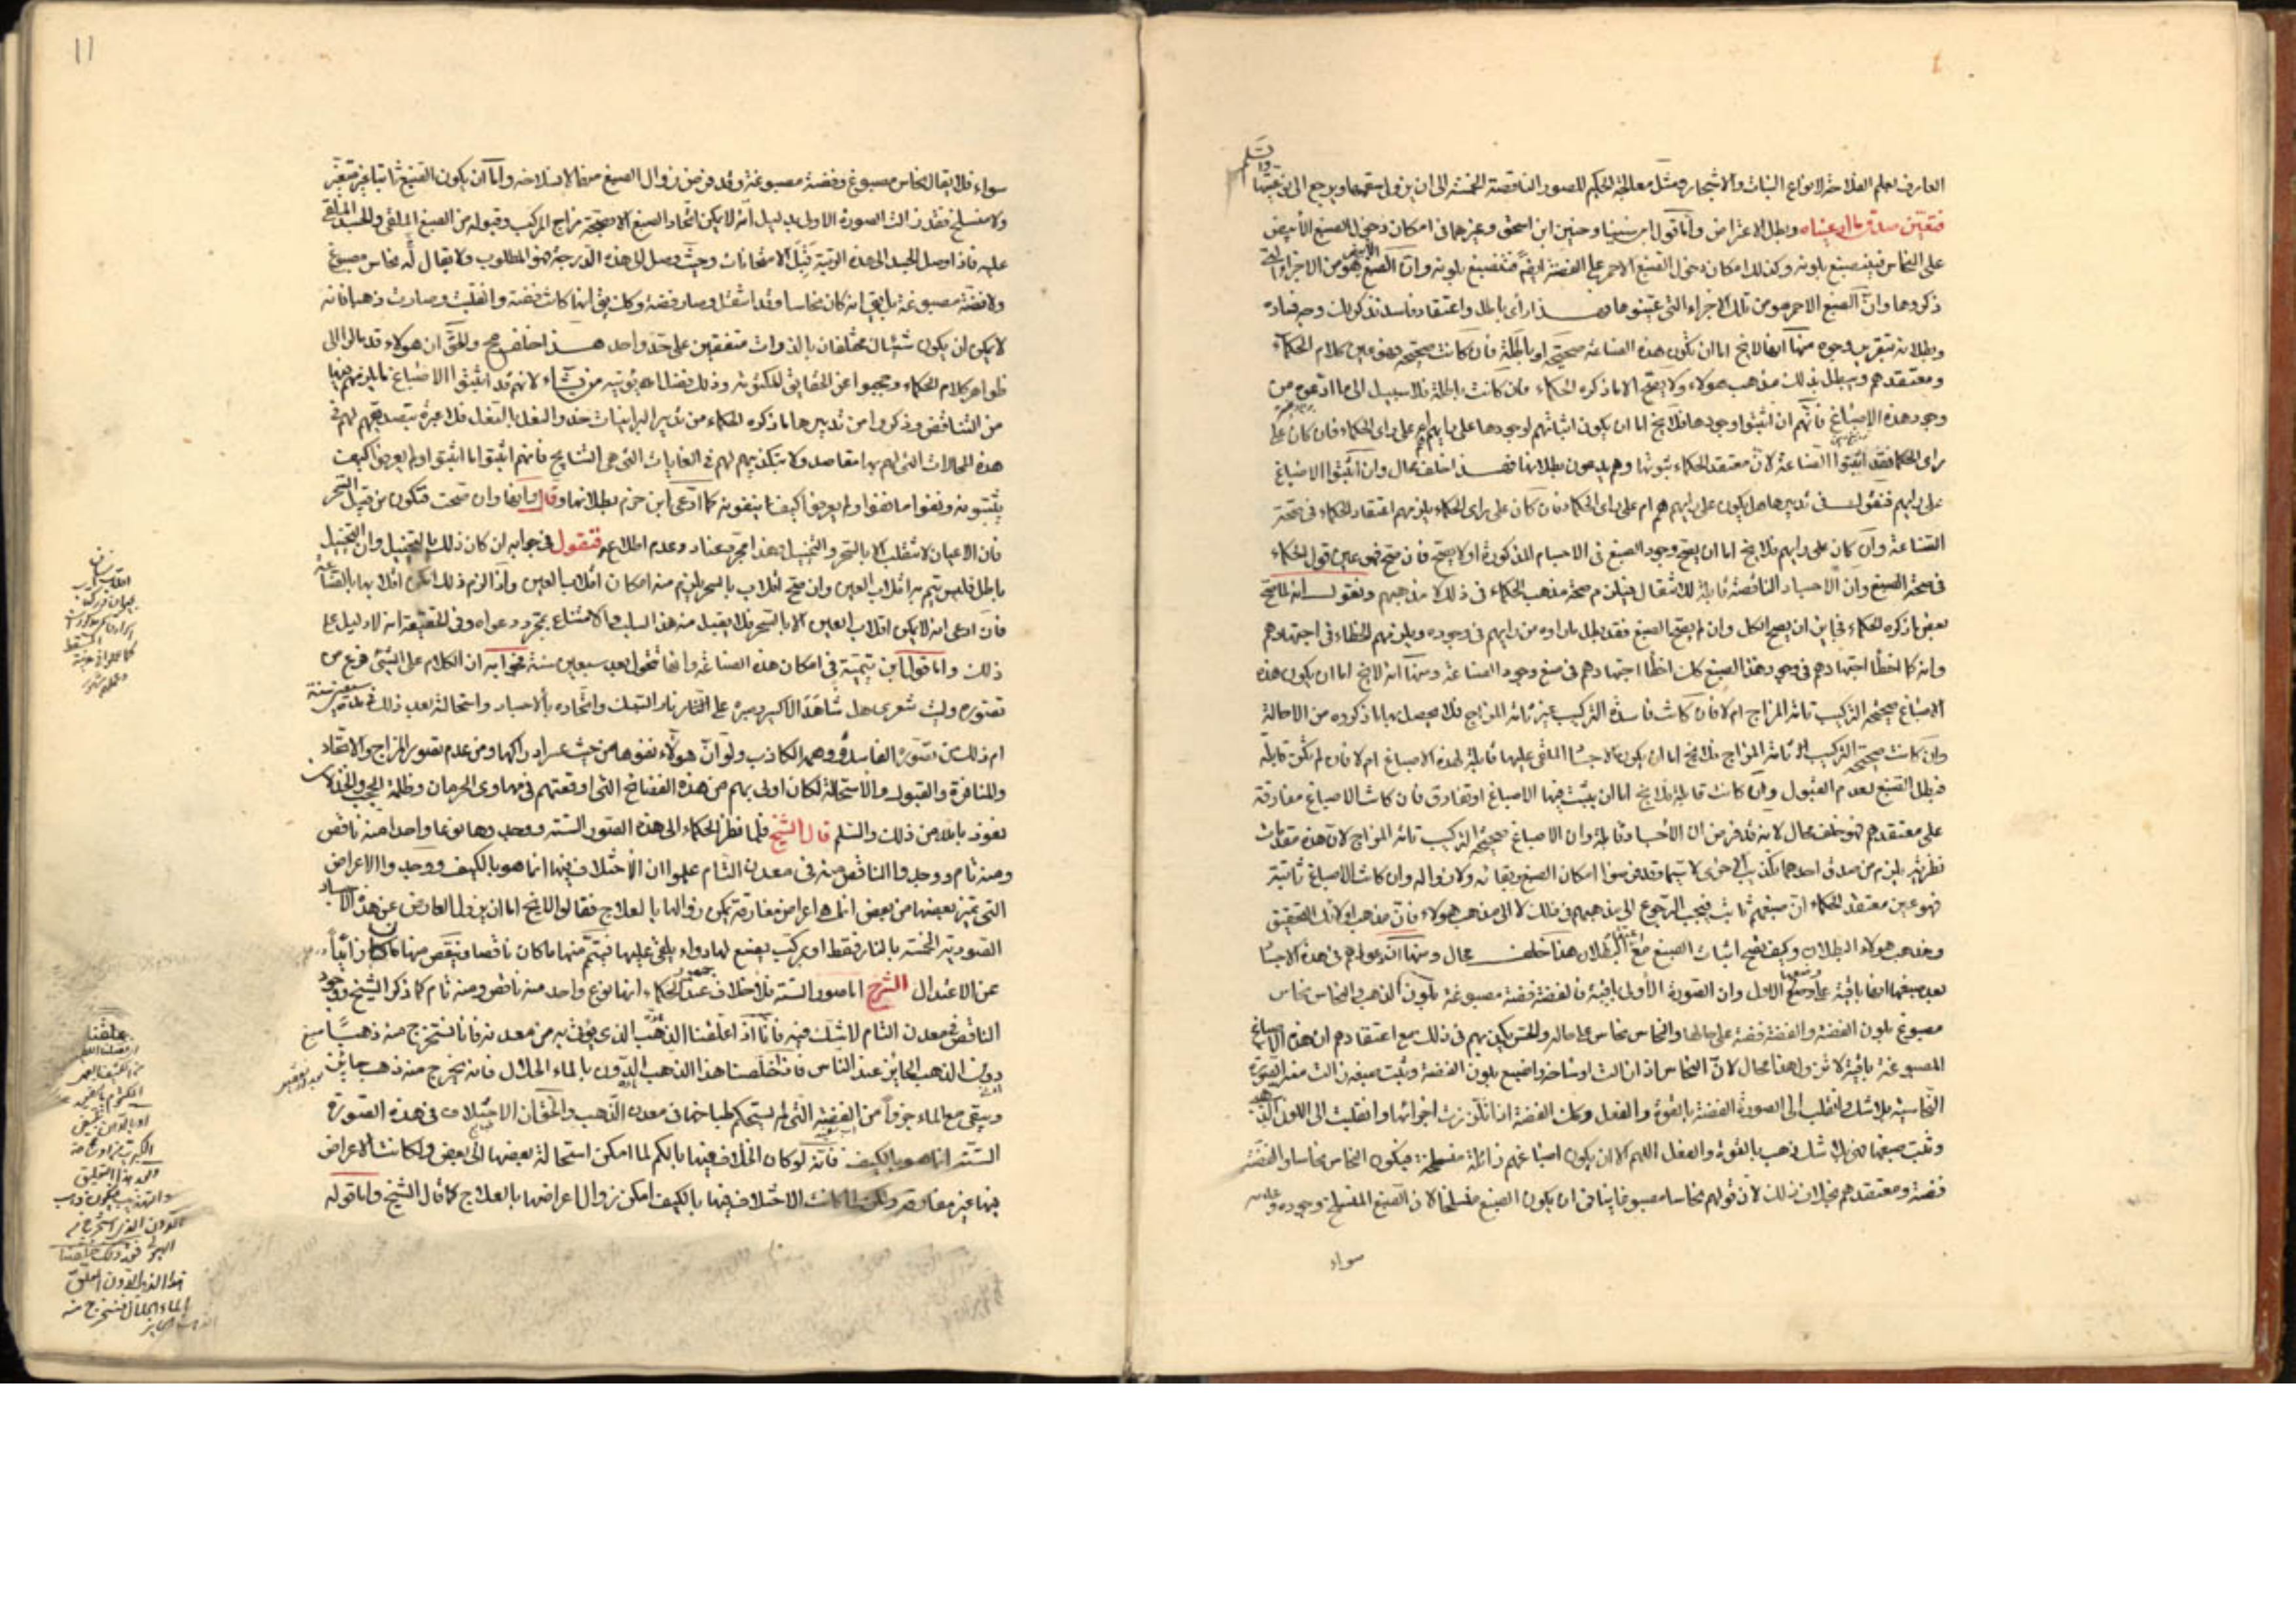 العارف بعلم الفلاحة لانواع النبات والاشجار ومثل معالجة الحكيم للصور الناقصة الخمسة الى ان يزول سقمها ويرجع الى
فتعين صدق ما ادعيناه وبطل الاعتراض واما قول ابن سينا وحنين ابن اسحق وغيرهما في امكان دخول الصبغ الابيض
على النحاس فينصبغ بلونه وكذلك امكان دخول الصبغ الاحمر على الفضة ايضا فتنصبغ بلونه وان الصبغ هو من الاجزاء التي
ذكروها وان الصبغ الاحمر هو من تلك الاجزاء التي عينوها فهذا رأى باطل واعتقاد فاسد نذكر لك وجه فساده
وبطلانه بتقرير وجوه منها انه لا يخ اما ان تكون هذه الصناعة صحيحة او باطلة فان كانت صحيحة فهو عين كلام الحكماء
ومعتقدهم ويبطل بذلك مذهب هولاء ولا يصح الا ما ذكره الحكماء فان كانت باطلة فلا سبيل الى ما ادعوه من
وجود هذه الاصباغ فانهم ان اثبتوا وجودها فلا يخ اما ان يكون اثباتهم لوجودها على رايهم ام على راى الحكماء فان كان على
راى الحكما فقد اثبتوا الصناعة لان معتقد الحكماء ثبوتها وهم يدعون بطلانها فهذا خلف محال وان اثبتوا الاصباغ
على رايهم فنقول في تدبيرها هل يكون على رايهم هم ام على راى الحكماء فان كان على راى الحكماء يلزمهم اعتقاد الحكماء في صحة
الصناعة وان كان على رايهم فلا يخ اما ان يصح وجود الصبغ في الاجسام المذكورة او لا يصح فان صح فهو عين قول الحكماء
في صحة الصبغ وان الاجساد الناقصة قابلة للانتقال فيلزم صحة مذهب الحكماء في ذلك لا مذهبهم ونقول انه لما صح
بعض ما ذكره الحكماء فباين ان يصح الكل وان لم يصح الصبغ فقد بطل ما راوه من رايهم في وجوده ويلزمهم الخطاء في اجتهادهم
وانه كما اخطأ اجتهادهم في وجود هذا الصبغ كذلك اخطأ اجتهادهم في منع وجود الصناعة ومنها انه لا يخ اما ان يكون هذه
الاصباغ صحيحة التركيب تامة المزاج ام لا فان كانت فاسدة التركيب غير تامة المزاج فلا يحصل بها ما ذكروه من الاحالة
وان كانت صحيحة التركيب تامة المزاج فلا يخ اما ان يكون الاجسا الملقى عليها قابلة لهذه الاصباغ ام لا فان لم تكن قابلة
فبطل الصبغ لعدم القبول وان كانت قابلة فلا يخ اما ان يثبت فيها الاصباغ او تفارق فان كانت الاصباغ مفارقة
على معتقدهم فهو خلف محال لانه قد فرض ان الاجساد قابلة وان الاصباغ صحيحة التركيب تامة المزاج لان هذه مقدمات
نظرية يلزم من صدق احدهما تكذيب الاخرى لا سيما وقد فرضوا امكان الصبغ وبقائه ولا زواله وان كانت الاصباغ ثابتة
فهو عين معتقد الحكماء ان صبغهم ثابت فيجب الرجوع الى مذهبهم في ذلك لا الى مذهب هولاء فان مذهب اولئك التحقيق
ومذهب هولاء البطلان وكيف يصح اثبات الصبغ مع البطلان هذا خلف محال ومنها ان دعواهم في هذه الاجسا
بعد صبغها انها باقية على وضعها الاول وان الصورة الاولى باقية فالفضة فضة مصبوغة بلون الذهب والنحاس نحاس
مصبوغ بلون الفضة والفضة فضة على حالها والنحاس نحاس على حاله والحس يكذبهم في ذلك مع اعتقادهم ان هذه الاصباغ
المصبوغة باقية لا تزول وهذا محال لان النحاس اذا زالت اوساخه وانصبغ بلون الفضة وثبت صبغه زالت منه الصورة
النحاسية بلا شك وانقلب الى الصورة الفضة بالقوة والفعل وكذلك الفضة اذا تلززت اجزائها وانقلبت الى اللون
وثبت صبغها فهي بلا شك ذهب بالقوة والفعل اللهم الا ان يكون اصباغهم زائلة منسلخة فيكون النحاس نحاسا والفضة
فضة ومعتقدهم بخلاف ذلك لان قولهم نحاسا مصبوغا ينافى ان يكون الصبغ منسلخا لان الصبغ المنسلخ وجوده وعدمه
سواء
11
سواء فلا يقال نحاس مصبوغ وفضة مصبوغة وقد فرض زوال الصبغ منها لانسلاخه واما ان يكون الصبغ ثابتا غير متغير
ولا منسلخ فقد زالت الصورة الاولى بدليل انه لا يمكن اتحاد الصبغ الا بصحة مزاج المركب وقبوله من الصبغ الملقى والجسد الملقى
عليه فاذا وصل الجسد الى هذه الرتبة قبل الامتحانات وحيث وصل الى هذه الدرجة فهو المطلوب ولا يقال له نحاس مصبوغ
ولا فضة مصبوغة بل يقال انه كان نحاسا وقد انتقل وصار فضة وكذلك يقال انها كانت فضة وانقلبت وصارت ذهبا فانه
لا يمكن ان يكون شيئان مختلفان بالذوات متفقين على حد واحد هذا خلف صح والحق ان هولاء قد مالوا الى
ظواهر كلام الحكماء وحجبوا عن الحقايق المكنونة وذلك فضل الله يؤتيه من يشاء لانهم قد اثبتوا الاصباغ
من التناقض وذكروا من تدبيرها ما ذكره الحكماء من تدبير البرانيات حذو النعل بالنعل فلا عبرة بتصديقهم لهم في
هذه المحالات التي لهم بها مقاصد ولا بتكذيبهم لهم في الغايات التي هي النتايج فانهم اثبتوا ما اثبتوا ولم يعرفوا كيف
يثبتونه ونفوا ما نفوا ولم يعرفوا كيف ينفونه كما ادعى ابن حزم بطلانها وقال انها وان صحت فتكون من قبيل السحر
فان الاعيان لا تنقلب الا بالسحر والتخييل فهذا مجرد عناد وعدم اطلاع فنقول في جوابه ان كان ذلك بالتخييل وان التخييل
باطل فليس يتم به انقلاب العين وان صح انقلاب بالسحر يلزم منه امكان انقلاب العين واذا لزم ذلك امكن انقلابها بالصناعة
فان ادعى انه لا يمكن انقلاب العين الا بالسحر فلا يقبل منه هذا السلب والامتناع بمجرد دعواه وفي الحقيقة انه لا دليل على
ذلك واما قول ابن تيمية في امكان هذه الصناعة وانها تتحول بعد سبعين سنة فجوابه ان الكلام على الشئ فرع من
تصوره وليت شعري هل شاهد الاكسير وصبره على النار نار السبك واتحاده بالاجساد واستحالته بعد ذلك في مدة سبعين سنة
ام ذلك من تصوره الفاسد ووهمه الكاذب ولو ان هولاء نفوها من حيث عسر ادراكها ومن عدم تصور المزاج والاتحاد
والمنافرة والقبول والاستحالة لكان اولى بهم من هذه الفضائح التي اوقعتهم في مهاوى الحرمان وظلمة الحجب والخذلان
نعوذ بالله من ذلك والسلم قال الشيخ فلما نظر الحكماء الى هذه الصور الستة ووجدوها نوعا واحدا منه ناقص
ومنه تام ووجدوا الناقص منه في معدن التام علموا ان الاختلاف فيها انما هو بالكيف ووجدوا الاعراض
التي تميز بعضها من بعض انما هي اعراض مفارقة يمكن زوالها بالعلاج فقالوا لا يخ اما ان يزول العارض عن هذه الاجساد
الصورية الخمسة بالنار فقط او يركب يصنع لها دواء يلقى عليها فيتم منها ما كان ناقصا وينقص منها ما كان زائدا
عن الاعتدال الشرح اما صور الستة فلا خلاف عند جمهور الحكماء انها نوع واحد منه ناقص ومنه تام كما ذكر الشيخ ووجود
الناقص في معدن التام لا شك فيه فانا اذا علقنا الذهب الذى يؤتى به من معدنه فانا نستخرج منه ذهبا
دون الذهب الجائز عند الناس فاذا خلصنا هذا الذهب الدون بالماء الحلال فانه يخرج منه ذهب جائز
ويبقى مع الماء جزوا من الفضة التي لم يستحكم طباخها في معدن الذهب والحق ان الاختلاف في هذه الصورة
الستة انما هو بالكيف فانه لو كان الخلاف فيها بالكم لما امكن استحالة بعضها الى بعض ولكانت الاعراض
فيها غير مفارقة ولكن لما كانت الاختلاف فيها بالكيف امكن زوال اعراضها بالعلاج كما قال الشيخ واما قوله